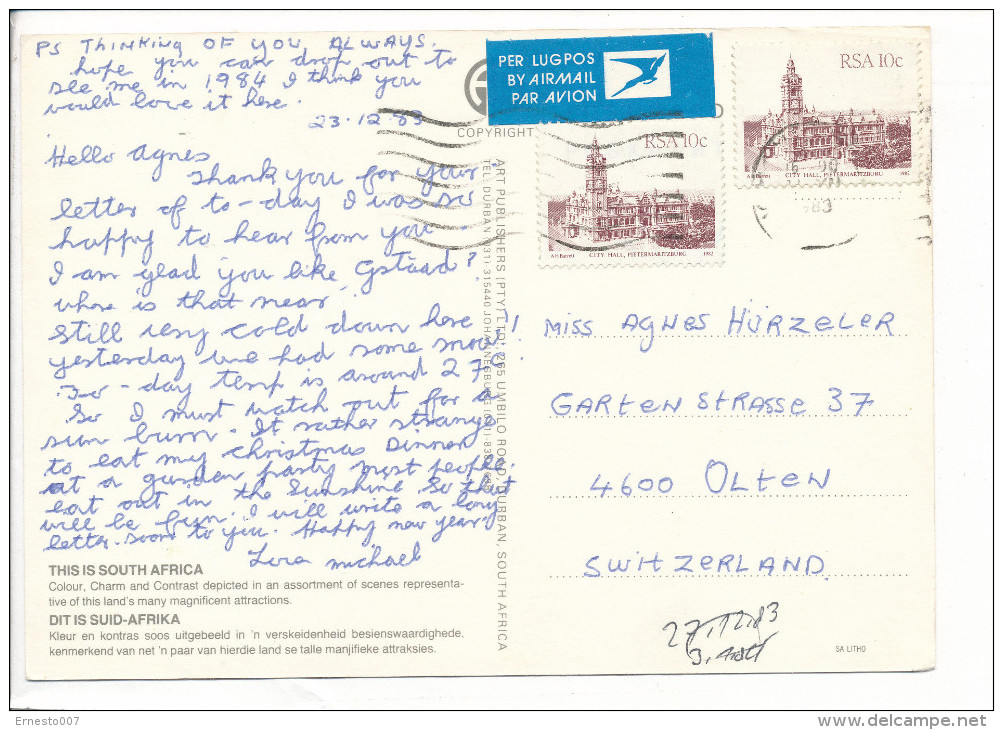 PS THINKING OF YOU, ALWAYS.
hope you can drop out to
see me in 1984 I think you
would love it here.
23.12.83
Hello Agnes
Thank you for your
letter of to-day I was so
happy to hear from you
I am glad you like Gstaad?
where is that near.
still very cold down here !!
yesterday we had some snow!
To-day temp is around 27c.
So I must watch out for a
sun burn. It rather strange
to eat my christmas Dinner
at a garden party most people
eat out in the sunshine so that
will be fun. I will write a long
letter soon to you. Happy new year
Love michael
THIS IS SOUTH AFRICA
Colour, Charm and Contrast depicted in an assortment of scenes representa-
tive of this land's many magnificent attractions.
DIT IS SUID-AFRIKA
Kleur en kontras soos uitgebeeld in 'n verskeidenheid besienswaardighede,
kenmerkend van net 'n paar van hierdie land se talle manjifieke attraksies.
COPYRIGHT
ART PUBLISHERS (PTY) LTD., 265 UMBILO ROAD, DURBAN, SOUTH AFRICA
TEL DURBAN (031) 315440 JOHANNESBURG (011)
PER LUGPOS
BY AIRMAIL
PAR AVION
RSA 10c
A H Barrett CITY HALL, PIETERMARITZBURG 1982
RSA 10c
A H Barrett CITY HALL, PIETERMARITZBURG 1982
MISS AGNES HÜRZELER
GARTEN STRASSE 37
4600 OLTEN
SWITZERLAND.
27.12.83
SA LITHO
Ernesto007
delcampe.net